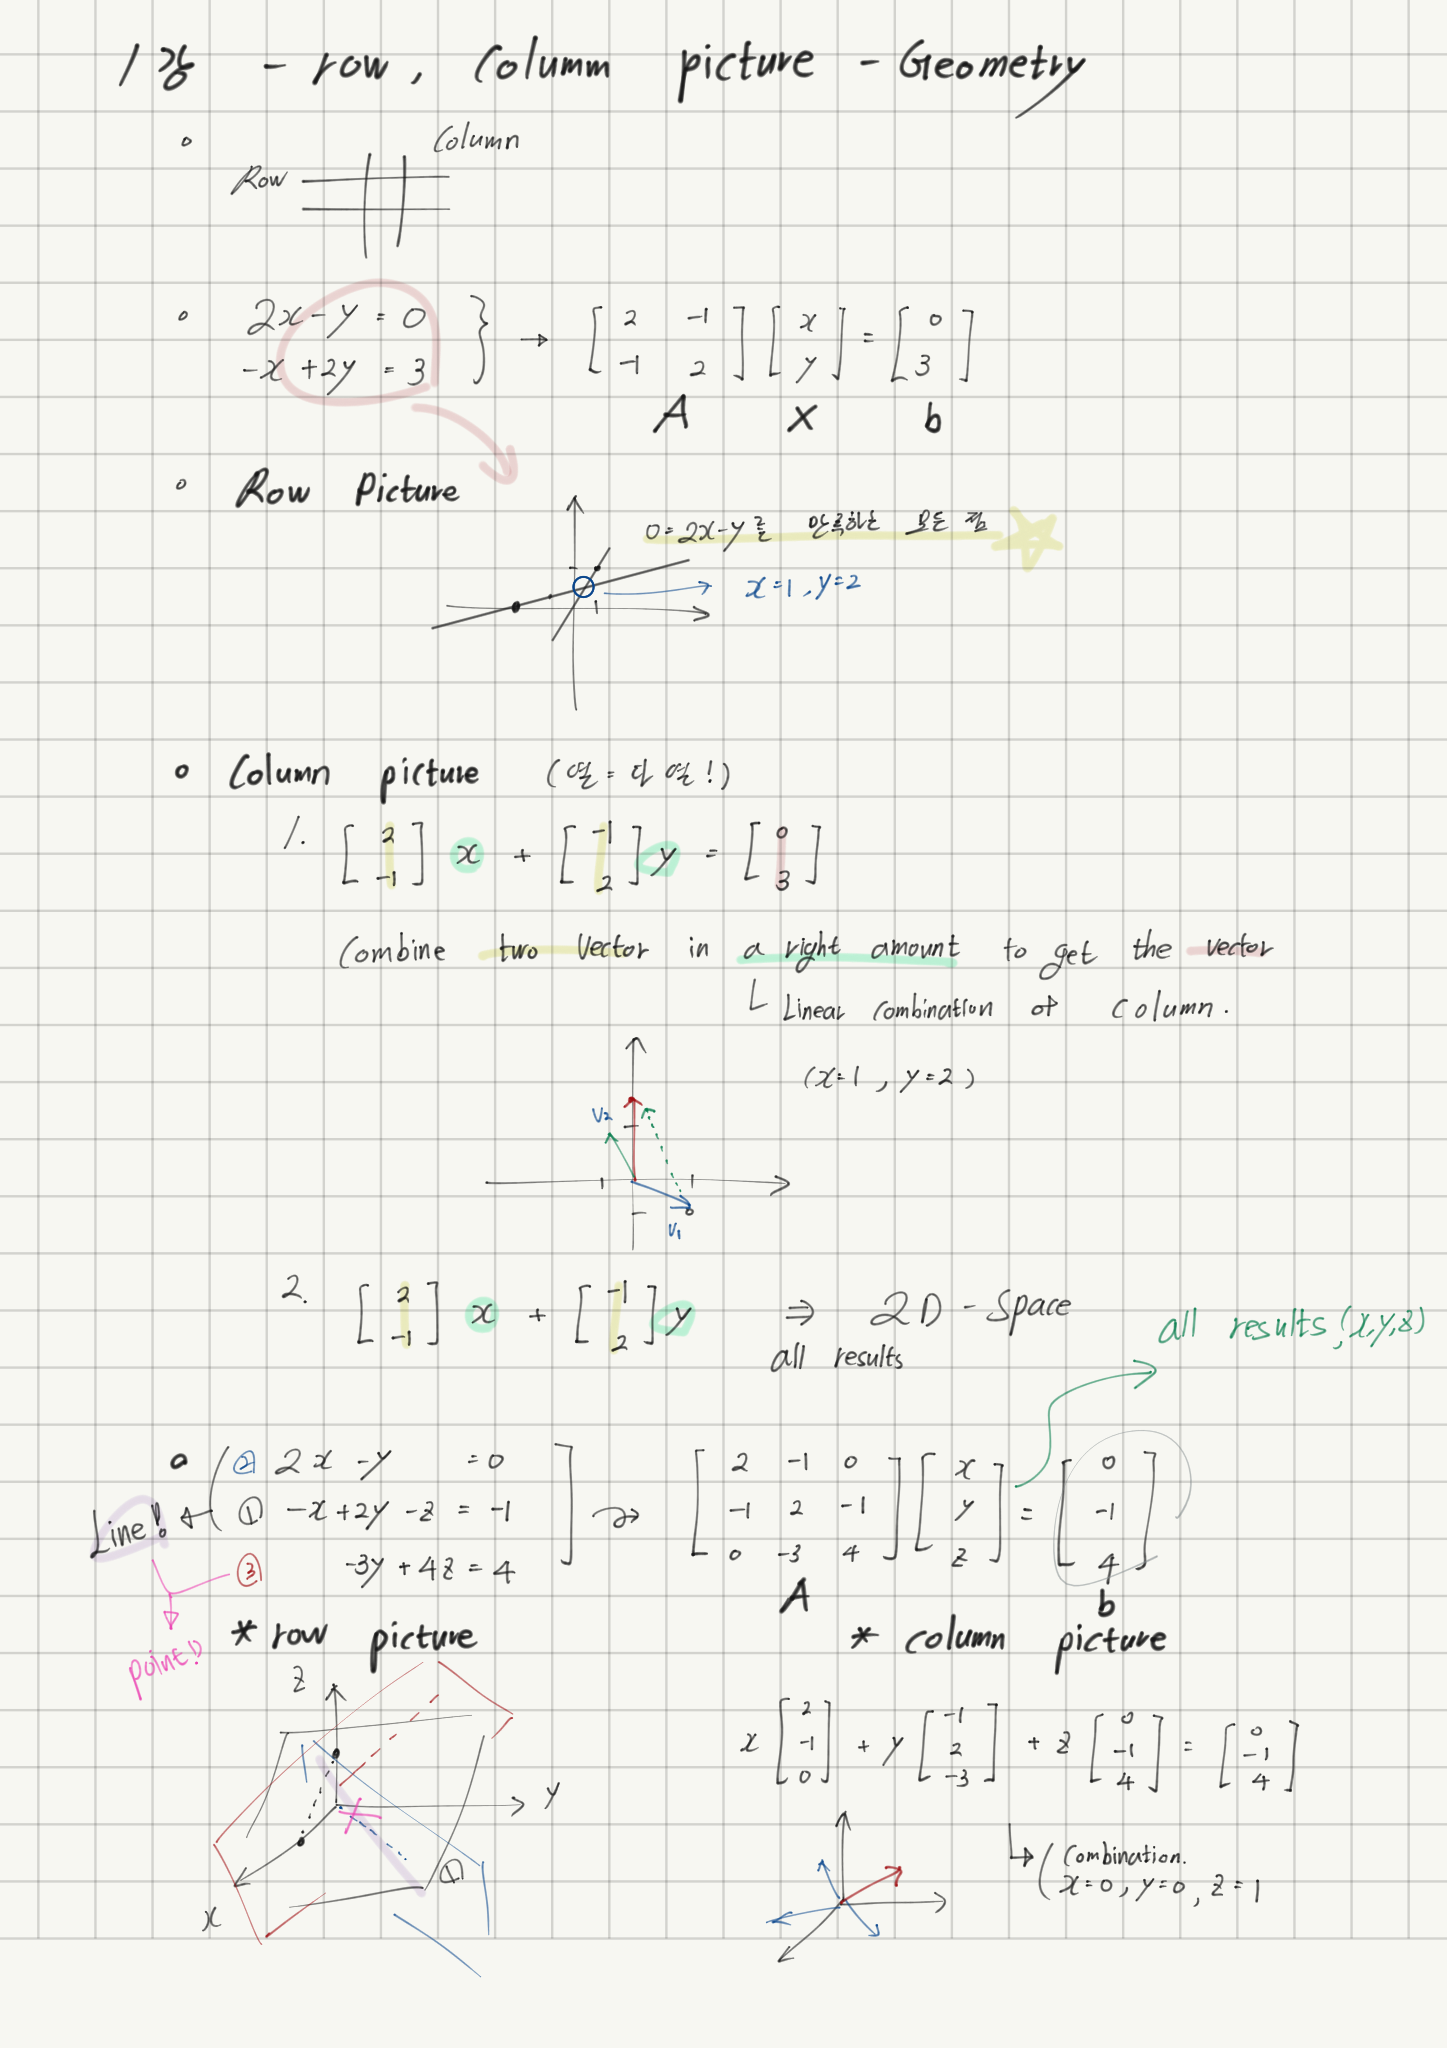 1강 - row, Columm picture - Geometry
Column
Row
2x-y = 0
-x+2y = 3
→ [2 -1; -1 2] [x; y] = [0; 3]
A x b
Row Picture
0=2x-y를 만족하는 모든 점
x=1, y=2
1
Column picture (열=다 열!)
1. [2; -1] x + [-1; 2] y = [0; 3]
Combine two Vector in a right amount to get the vector
Linear combination of column.
(x=1, y=2)
V2
1 1
V1
2. [2; -1] x + [-1; 2] y ⇒ 2D-Space
all results
all results, (x,y,z)
② 2x -y = 0
Line! ← ① -x+2y -z = -1
③ -3y+4z = 4
[2 -1 0; -1 2 -1; 0 -3 4] [x; y; z] = [0; -1; 4]
A b
point!
* row picture
* column picture
z
y
x
①
x [2; -1; 0] + y [-1; 2; -3] + z [0; -1; 4] = [0; -1; 4]
Combination.
x=0, y=0, z=1